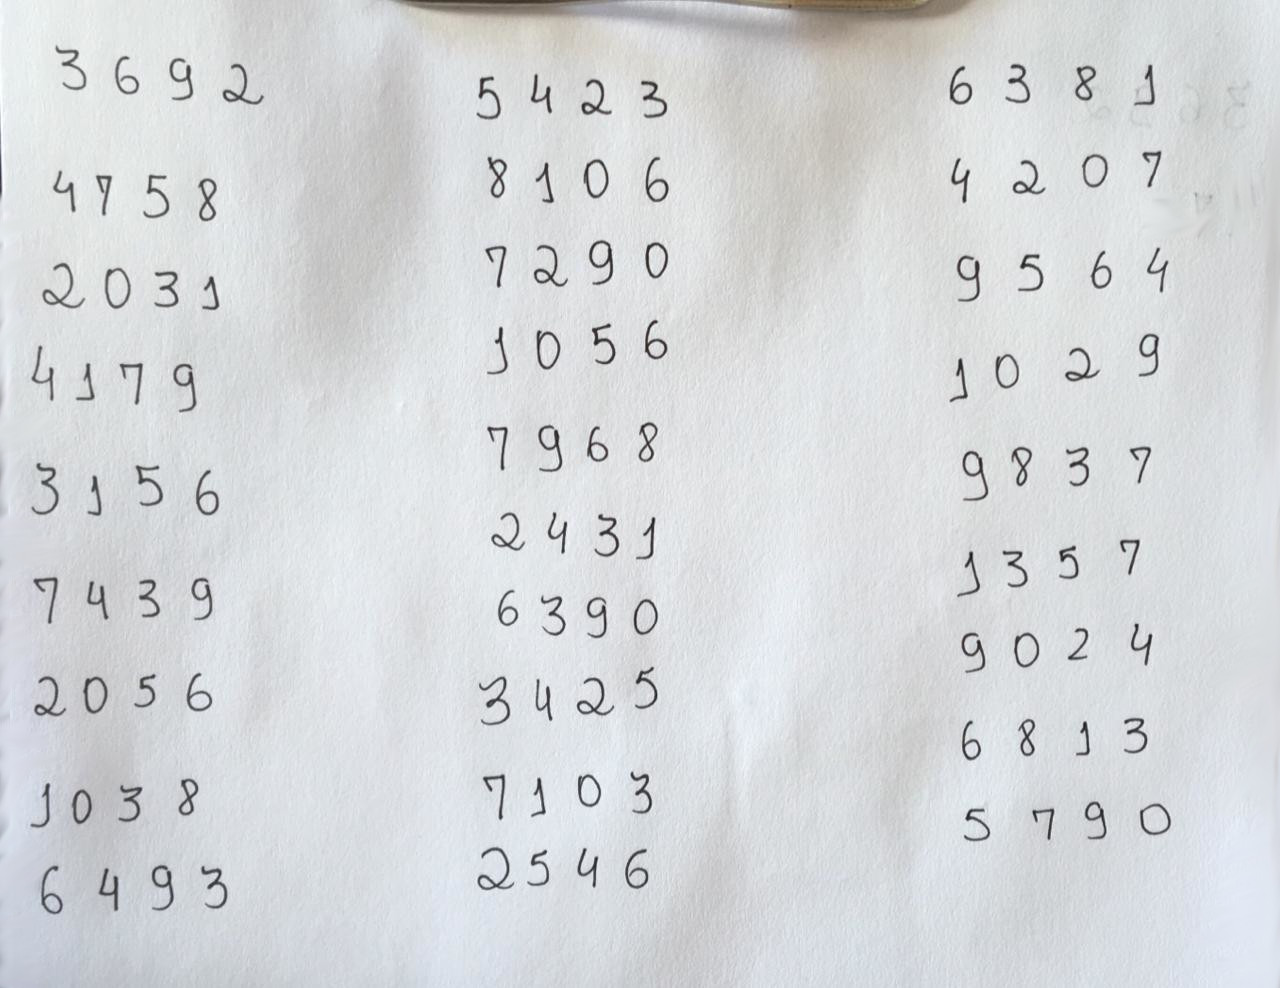 3 6 9 2
4 7 5 8
2 0 3 1
4 1 7 9
3 1 5 6
7 4 3 9
2 0 5 6
1 0 3 8
6 4 9 3
5 4 2 3
8 1 0 6
7 2 9 0
1 0 5 6
7 9 6 8
2 4 3 1
6 3 9 0
3 4 2 5
7 1 0 3
2 5 4 6
6 3 8 1
4 2 0 7
9 5 6 4
1 0 2 9
9 8 3 7
1 3 5 7
9 0 2 4
6 8 1 3
5 7 9 0